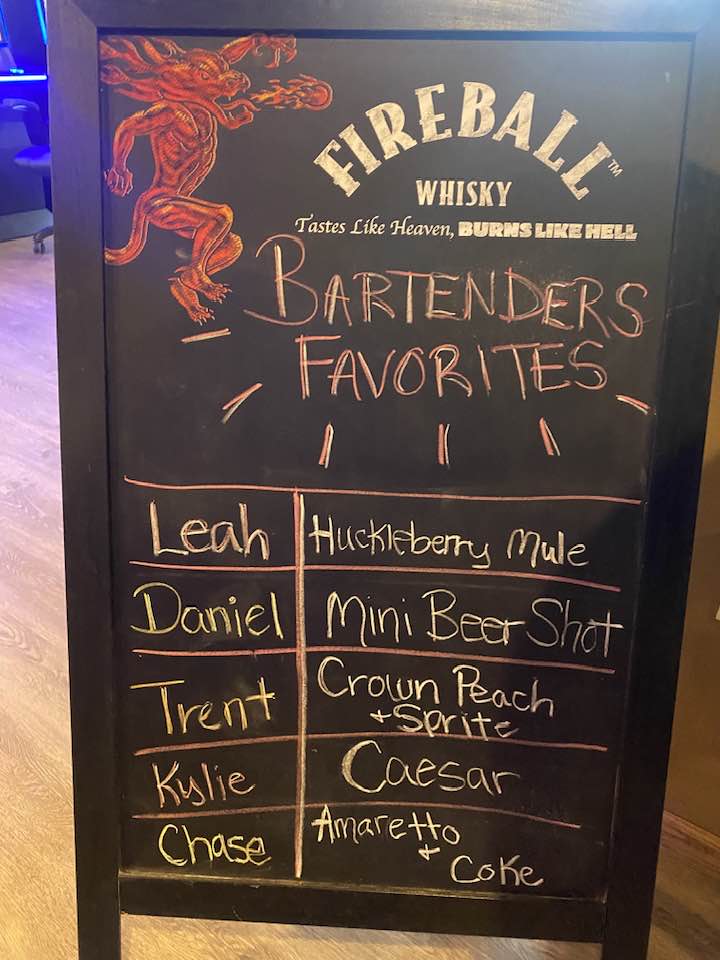 FIREBALL™
WHISKY
Tastes Like Heaven, BURNS LIKE HELL
BARTENDERS
FAVORITES
Leah Huckleberry Mule
Daniel Mini Beer Shot
Trent Crown Peach
+ Sprite
Kylie Caesar
Chase Amaretto
+ Coke